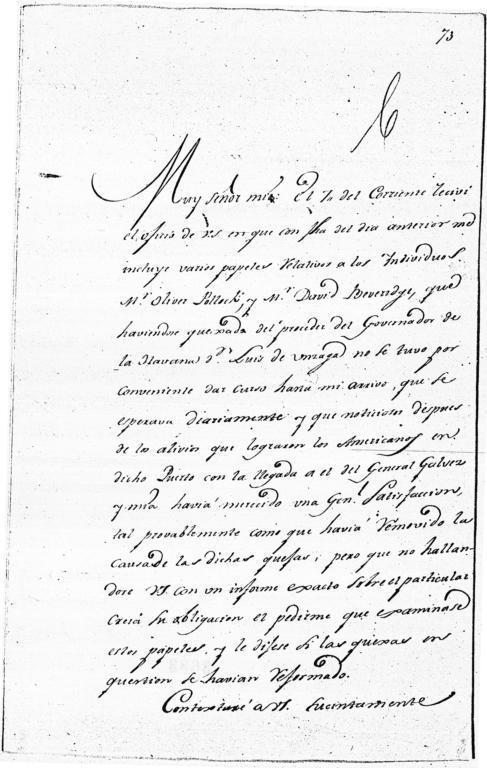 73
Muy Señor mio: El 7 del Corriente recivi
el oficio de VS en que con fha del dia anterior me
incluye varios papeles relativos a los Individuos
Mr. Oliver Pollock, y Mr. David Beveridge, que
haviendose quexado del proceder del Governador de
la Havana Dn. Luis de Unzaga no se tuvo por
conveniente dar curso hasta mi arrivo, que se
esperava diariamente y que noticioso despues
de los alivios que lograron los Americanos en
dicho Puerto con la llegada a el del General Galvez
y mia havia merecido una Genl. Satisfaccion,
tal provablemente como que havia removido la
causa de las dichas quejas; pero que no hallan
dose VS con un informe exacto sobre el particular
creia su obligacion el pedirme que examinase
estos papeles, y le dijese si las quexas en
question se havian reformado.
Contextaré a VS. sucintamente